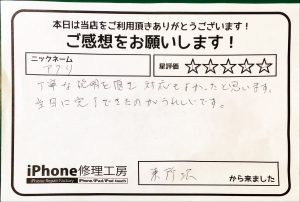 本日は当店をご利用頂きありがとうございます！
ご感想をお願いします！
ニックネーム
アフリ
星評価 ☆☆☆☆☆
丁寧な説明を頂き 対応もよかったと思います。
当日に完了できたのがうれしいです。
iPhone修理工房
iPhone Repair Factory iPhone/iPad/iPod touch
東所沢 から来ました